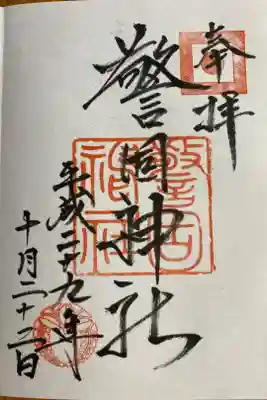 奉拝
警固神社
平成二十九年
十月二十二日